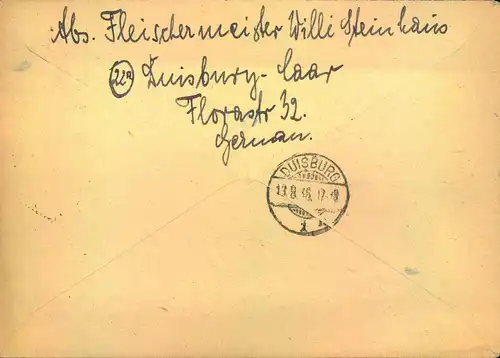 Abs. Fleischermeister Willi Steinhaus
22a Duisburg-Laar
Florastr 32.
German.
DUISBURG
13.8.46.17-18
1